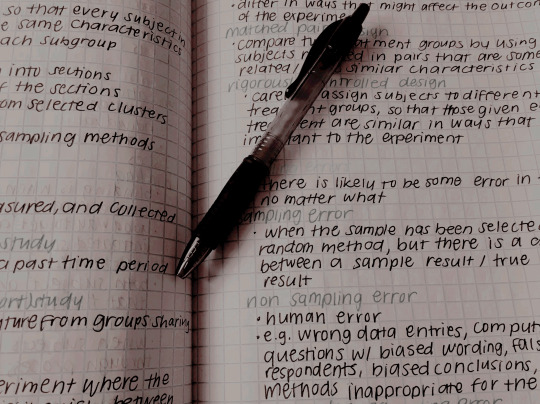 so that every subject in
same characteristics
each subgroup
into sections
of the sections
from selected clusters
sampling methods
and collected
study
a past time period
study
from groups sharing
where the
between
differ in ways that might affect the
of the
matched
compare treatment groups by using
subjects in pairs that are some
related similar characteristics
design
assign subjects to different
groups, so that those given
are similar in ways that
to the experiment
there is likely to be some error in
no matter what
sampling error
· when the sample has been
random method, but there is a
between a sample result / true
result
non sampling error
· human error
· e.g. wrong data entries,
questions w/ biased wording,
respondents, biased conclusions,
methods inappropriate for the
error